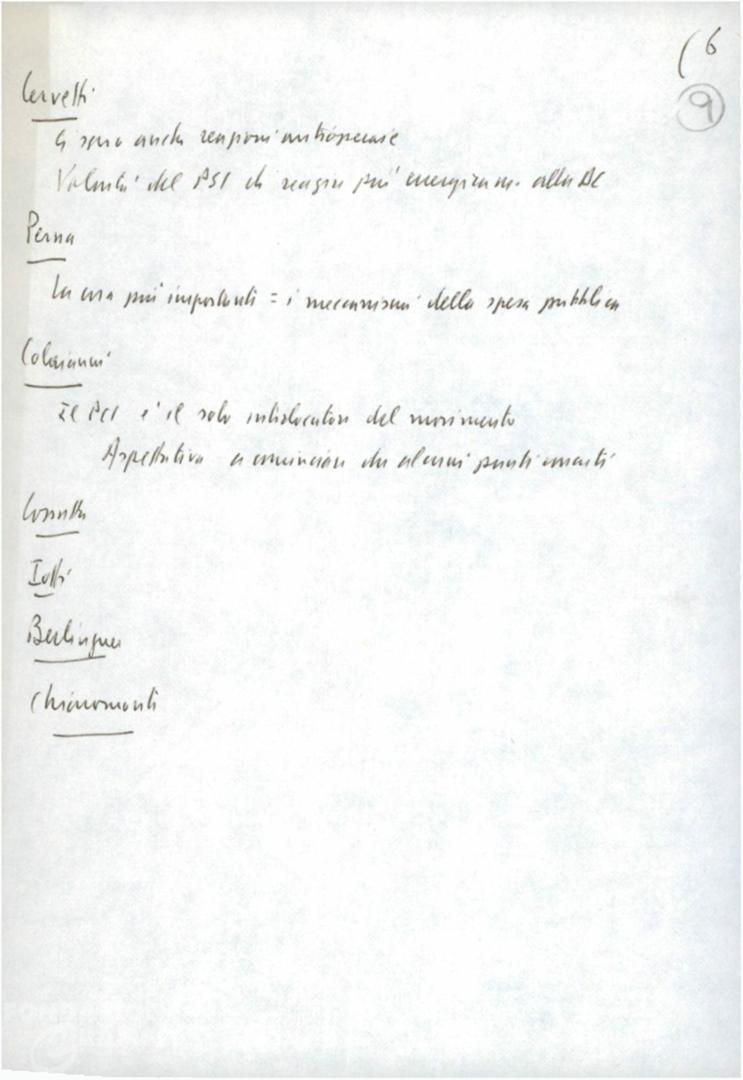 (6
9
Cervetti
Ci sono anche reazioni antioperaie
Volontà del PSI di reagire più energicam. alla DC
Perna
La cosa più importanti = i meccanismi della spesa pubblica
Colajanni
Il PCI è il solo interlocutore del movimento
Aspettativa a cominciare da alcuni punti
Cossutta
Iotti
Berlinguer
Chiaromonti